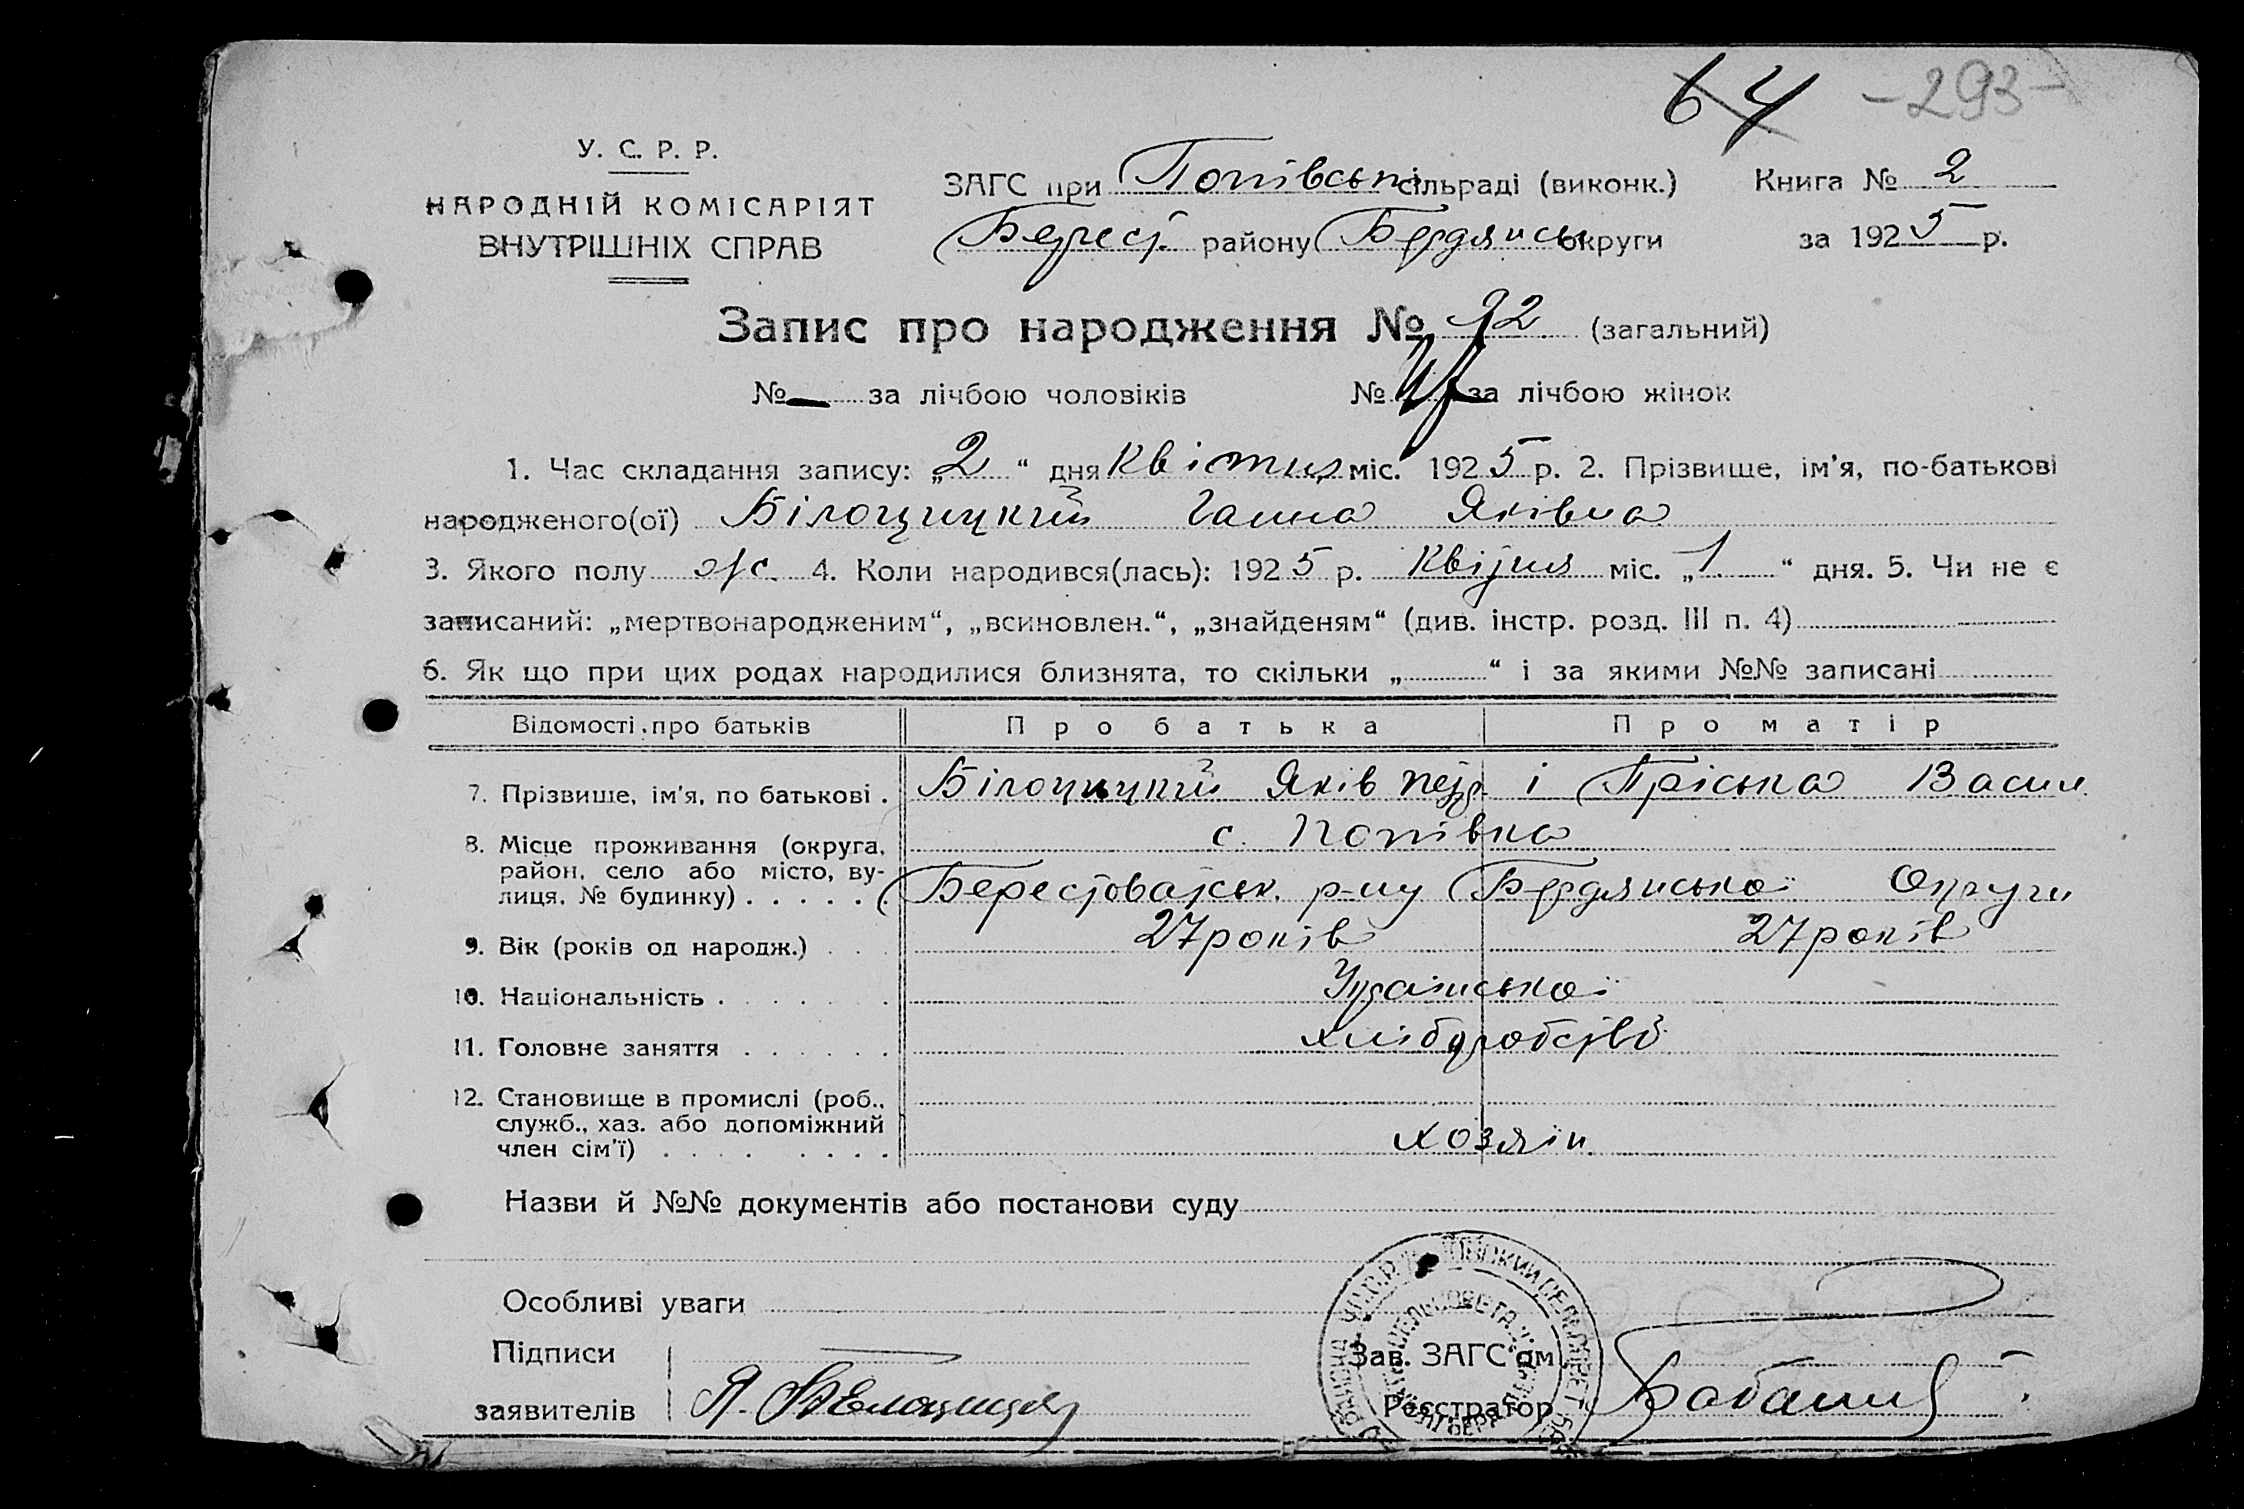 64 -293-
У. С. Р. Р.
НАРОДНІЙ КОМІСАРІЯТ
ВНУТРІШНІХ СПРАВ
ЗАГС при Попівській сільраді (виконк.) Книга № 2
Берест. району Бердянськ округи за 1925 р.
Запис про народження № 92 (загальний)
№ — за лічбою чоловіків № за лічбою жінок
1. Час складання запису: „2“ дня Квітня міс. 1925 р. 2. Прізвище, ім'я, по-батькові
народженого(ої) Білоцицкий Ганна Яківна
3. Якого полу ж. 4. Коли народився(лась): 1925 р. Квітня міс. „1“ дня. 5. Чи не є
записаний: „мертвонародженим“, „всиновлен.“, „знайденям“ (див. інстр. розд. III п. 4)
6. Як що при цих родах народилися близнята, то скільки „ “ і за якими №№ записані
Відомості про батьків Про батька Про матір
7. Прізвище, ім'я, по батькові . Білоцицкий Яків і Пріська Васил
8. Місце проживання (округа, с. Попівка
район, село або місто, ву-
лиця, № будинку) . . . . . . Берестоватськ. р-ну Бердянської Округи
9. Вік (років од народж.) . . . 27 років 27 років
10. Національність . . . . . . Української
11. Головне заняття . . . . . . хліборобство
12. Становище в промислі (роб.,
служб., хаз. або допоміжний
член сім'ї) . . . . . . . . . хозяін
Назви й №№ документів або постанови суду
Особливі уваги
Підписи Зав. ЗАГС'ом
заявителів Я. Реєстратор